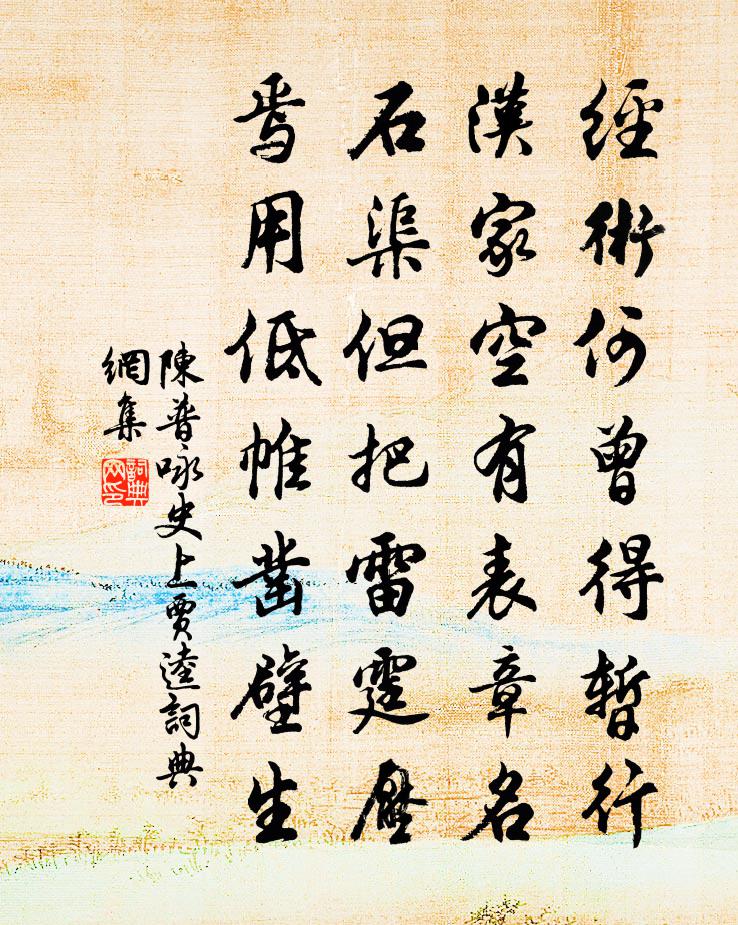 經術何曾得暫行
漢家空有表章名
石渠但把雷霆壓
焉用低帷凿壁生
陳普咏史上賈逵詞典
網集
詞典網印